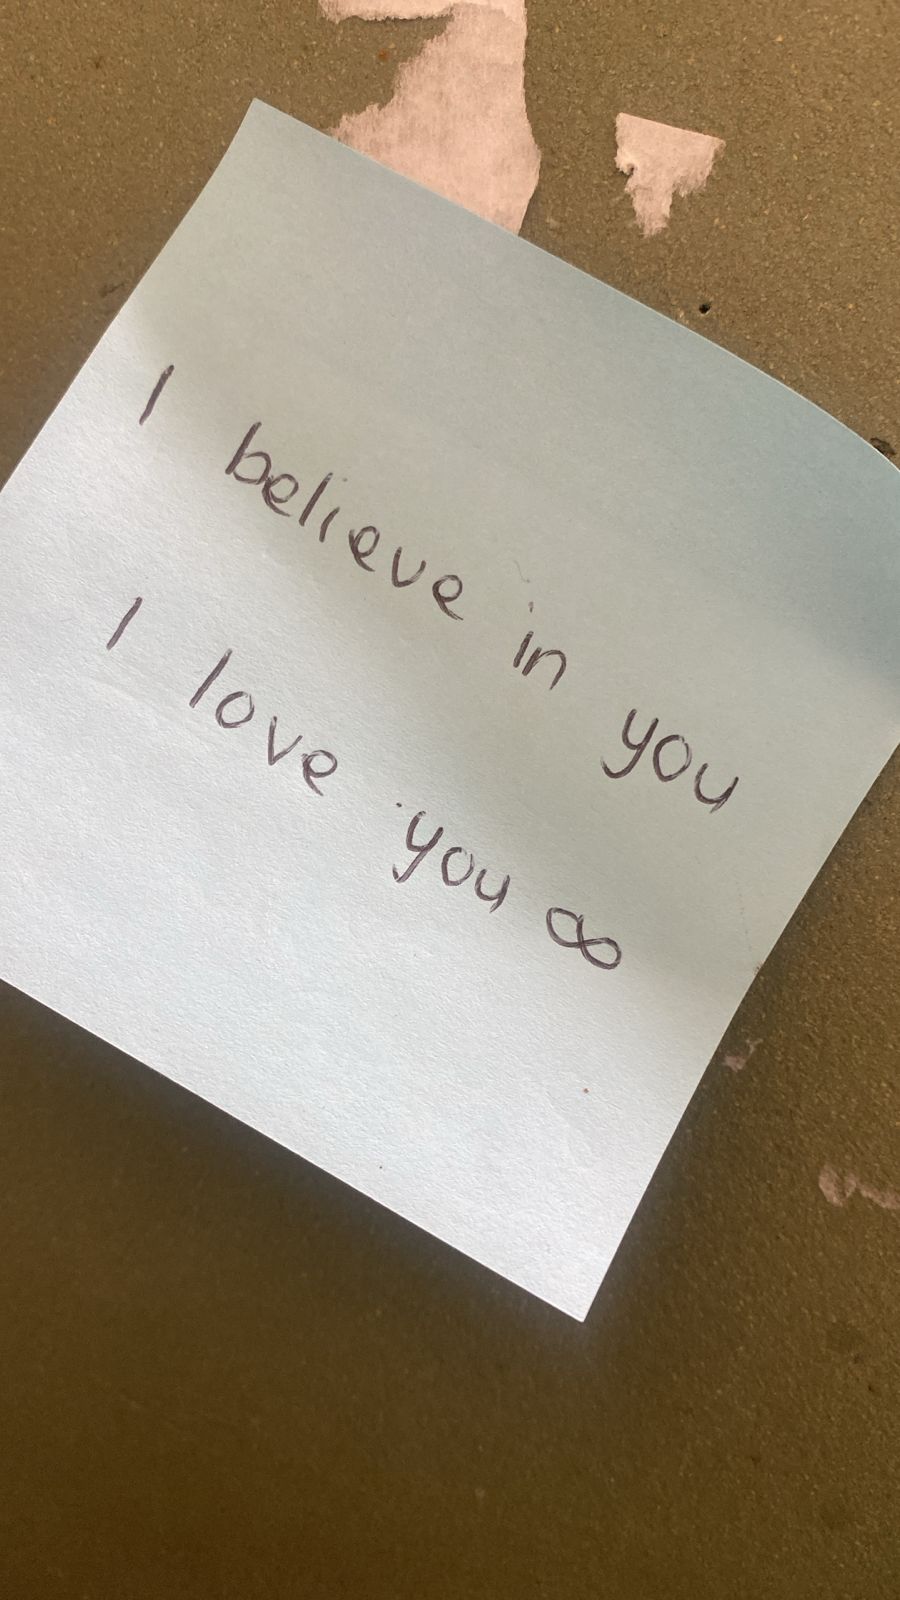 I believe in you
I love you ∞